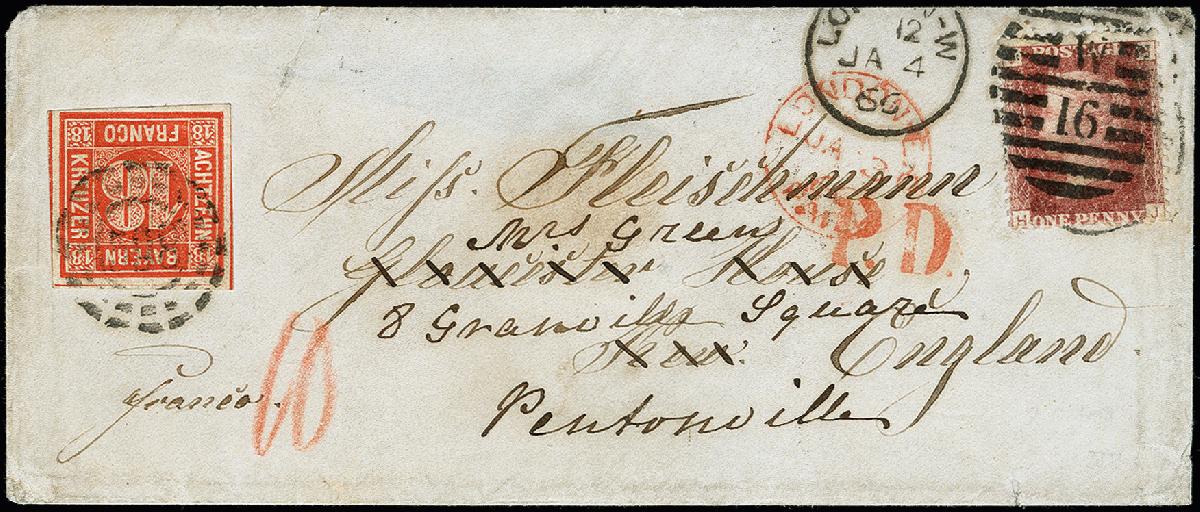 18 BAYERN 18
ACHTZEHN
KRUZER
18 FRANCO 18
LO W
12
JA 4
66
LONDON
JA
PAID
P.D.
POSTAGE
W
16
H ONE PENNY J
Miss. Fleischmann
Mrs Green
House
8 Granville Square
Kew. England.
Pentonville
franco.